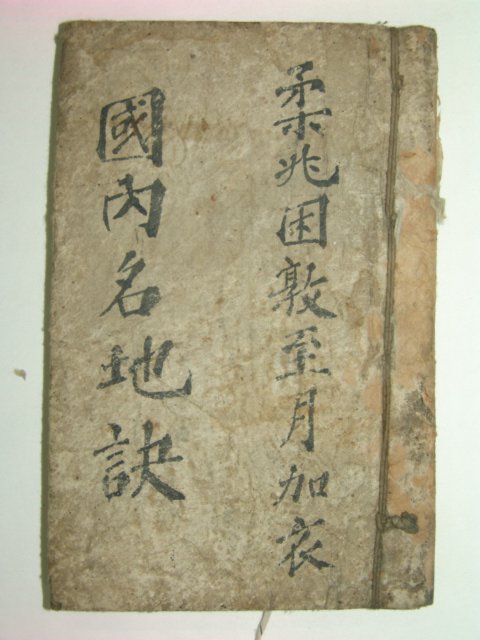 柔兆困敦至月加衣
國內名地訣